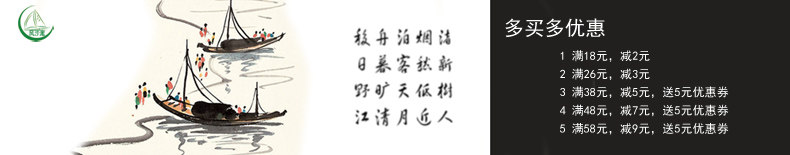 移舟泊烟渚
日暮客愁新
野旷天低樹
江清月近人
多买多优惠
1 满18元，减2元
2 满26元，减3元
3 满38元，减5元，送5元优惠券
4 满48元，减7元，送5元优惠券
5 满58元，减9元，送5元优惠券